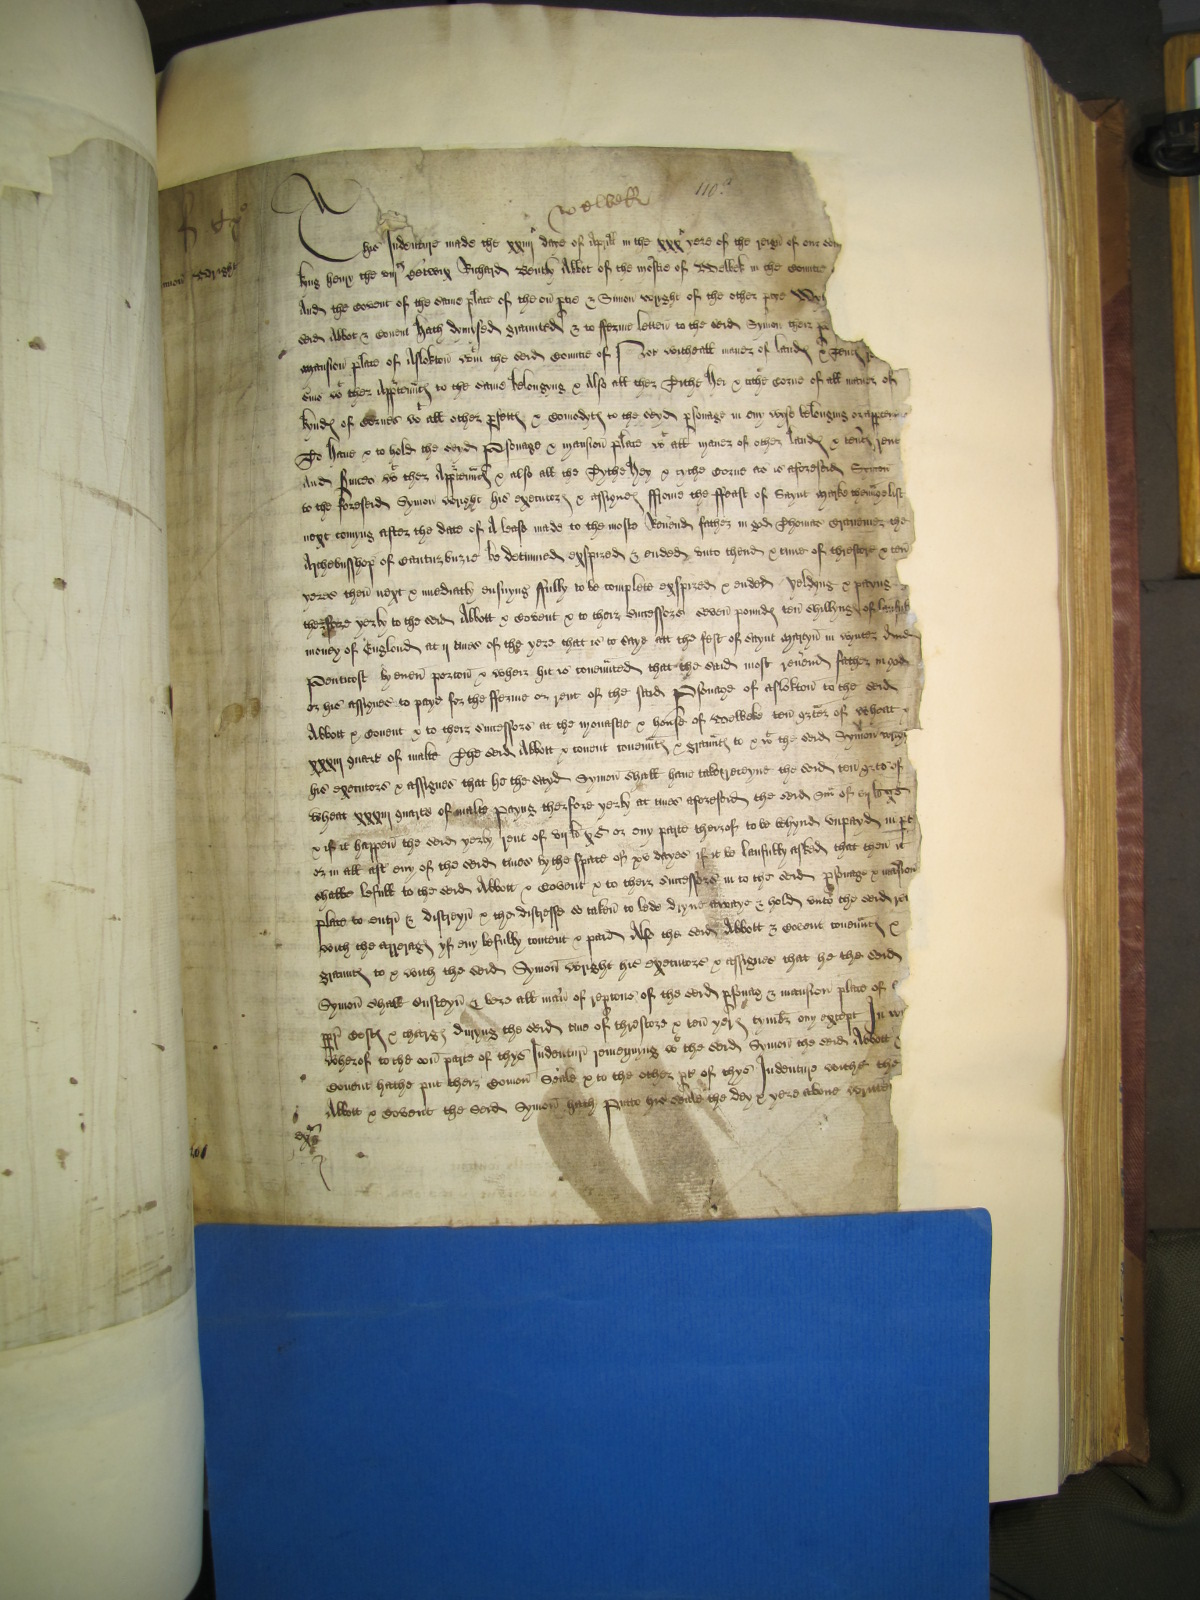 Welbek
110
This Indenture made the xxiiij daie of Aprill in the xxx yere of the reign of our
king henry the viijth betwix Richard Bently Abbot of the mostre of Welbek in the Countie
And the Covent of the same place of the on ptie & Simon Wright of the other ptye
seid Abbot & Covent hath dymysed graunted & to fferme letten to the seid Symon their
mansion place of Aslokton wtin the seid Countie of Not withall maner of landes &
wt ther Apprtennces to the same belongyng & Also all ther Tithe Hey & tithe Corne of all maner of
kyndes of Cornes wt all other pfettes & Comodytes to the seyd psonage in eny wyse belonging or apperten
To have & to hold the seid Psonage & mansion place wt all maner of other landes & tentes rent
And wt ther Apprtennces & also all the Tythe Hey & tythe Corne as is aforeseid Symon
to the foreseid Symon Wright his executors & assignes ffrome the ffeast of Saynt Marke
next comyng after the date of A lease made to the moste Reverend father in god Thomas Cranemer the
Archebusshop of Canturburie be detmined exspired & ended unto thend & time of threscore & ten
yeres then next & imediatly ensuyng ffully to be complete exspired & ended yeldyng & payng
therfore yerly to the seid Abbott & Covent & to their successors seven poundes ten shillyng of laufull
money of Englond at ij times of the yere that is to saye att the fest of saynt Martyn in wynter And
Penticost by even porcons & wher hit is convented that the said most revend father in god
or his assignes to paye for the fferme or rent of the said Psonage of aslokton to the seid
Abbott & Covent & to their successors at the monastie & house of Welbeke ten qrters of Wheat &
xxxiij quarts of malte The seid Abbott & covent covennt & graunt to & wt the seid Symon Wright
his executors & assignes that he the sayd Symon shall have take receyve the seid ten qrts of
wheat xxxiij quarts of malte Payng therfore yerly at times aforeseid the seid Sm of vij li xs
& if it happen the seid yerly rent of vij li xs or eny parte therof to be behynd unpayd in pt
or in all aft eny of the seid times by the space of xv dayes if it be laufully asked that then it
shalbe lefull to the seid Abbott & Covent & to their successors in to the seid psonage & mansion
place to entr & distreyn & the distresse so taken to lede dryve awaye & hold unto the seid rent
with the arrerages yf eny lefully content & paid Also the seid Abbott & Covent covennt &
graunt to & with the seid Symon Wright his executors & assignes that he the seid
Symon shall susteyn & bere all man of repcons of the seid psonag & mansion place of
ppr Costes & charges duryng the seid time of threscore & ten yeres tymbr ony except In wi
wherof to the on parte of thys Indentur remeynyng wt the seid Symon the seid Abbott &
Covent hathe put their Comon Seale & to the other pt of thys Indenture withe the
Abbott & Covent the seid Symon hath Putto his Seale the dey & yere above written